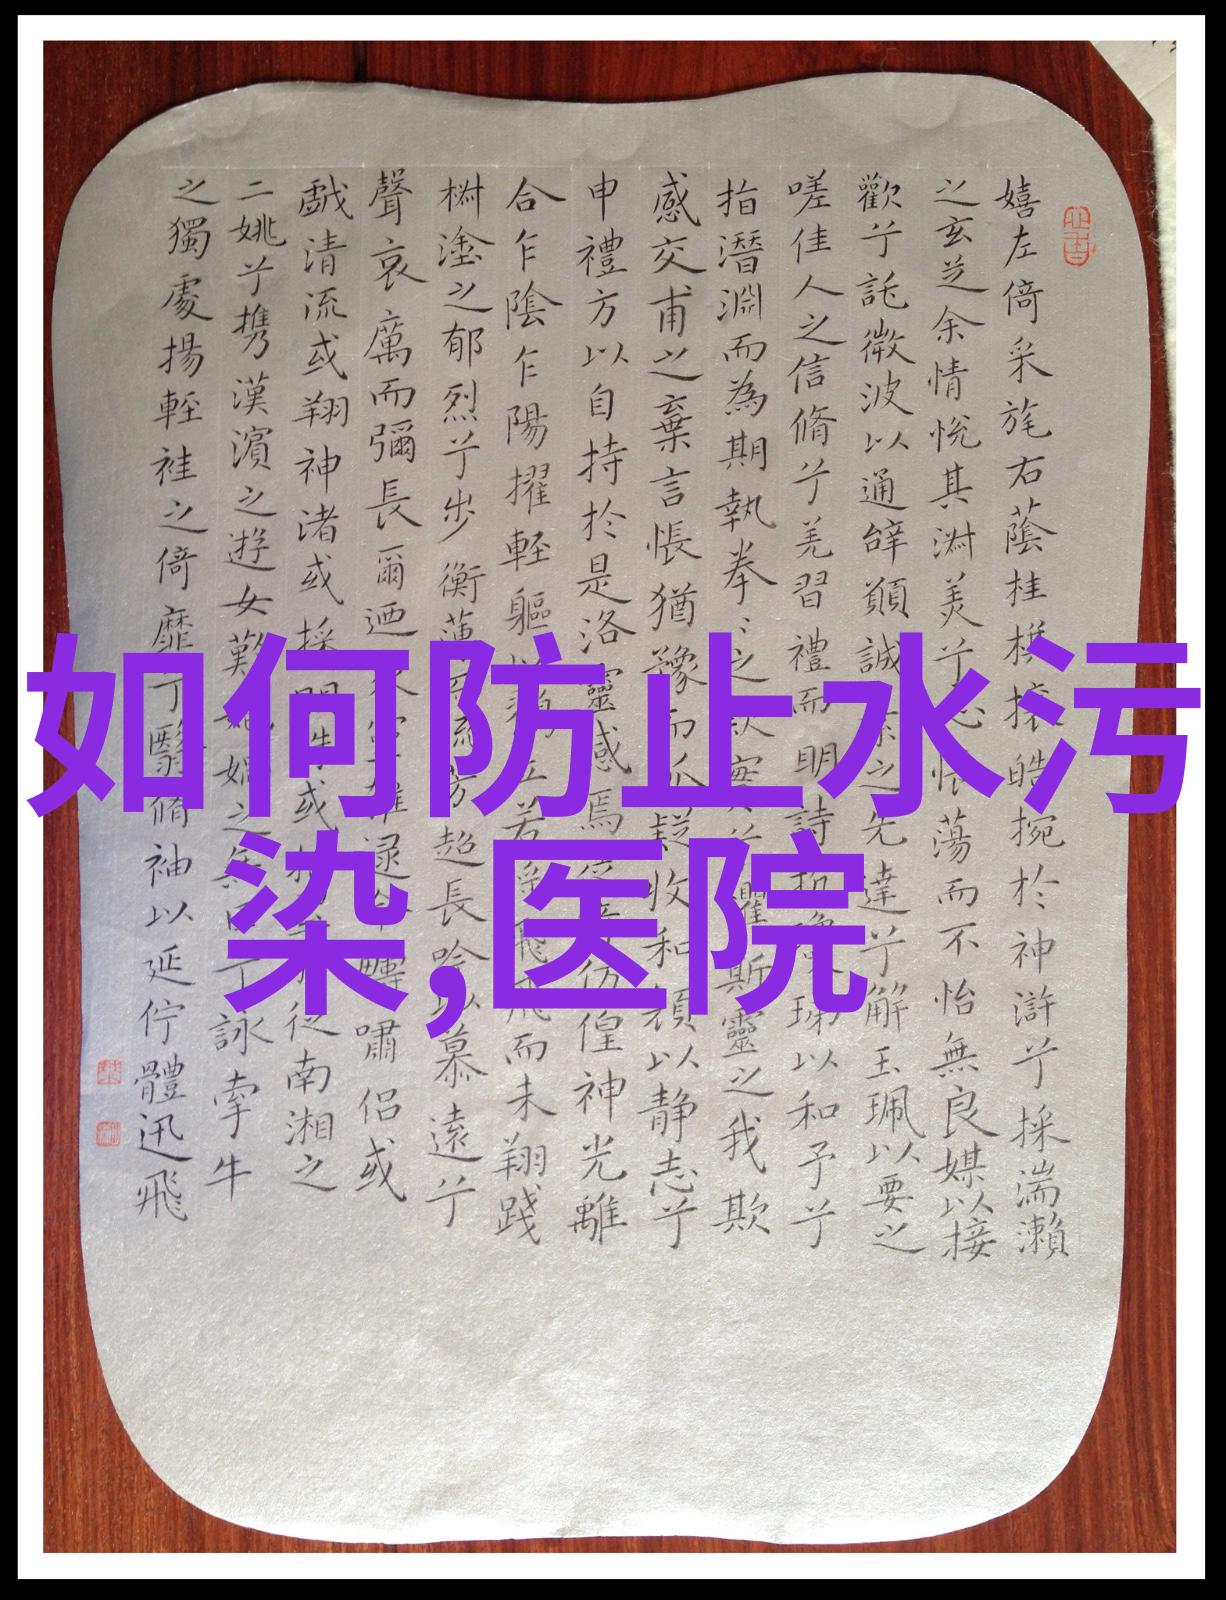 如何防止水污
染,医院
嬉左倚采旄右蔭桂攘皓捥於神滸兮採湍瀨
之玄芝余情悅其淑美兮心悵蕩而不怡無良媒以接
歡兮託微波以通辭願誠素之先達兮解玉珮以要之
嗟佳人之信脩兮羌習禮而明詩以和予兮
指潛淵而為期執拳〻之款實兮懼斯靈之我欺
感交甫之棄言悵猶豫而狐疑收和顏以静志兮
申禮方以自持於是洛靈感焉彷徨神光離
合乍陰乍陽擢輕軀以立若飛而未翔踐
椒塗之郁烈兮步蘅薄流芳超長吟以慕遠兮
聲哀厲而彌長爾迺雜遝命疇嘯侶或
戲清流或翔神渚或採明珠或從南湘之
二姚兮攜漢濱之遊女歎媧之無匹兮詠牽牛
之獨處揚輕袿之倚靡兮翳脩袖以延佇體迅飛